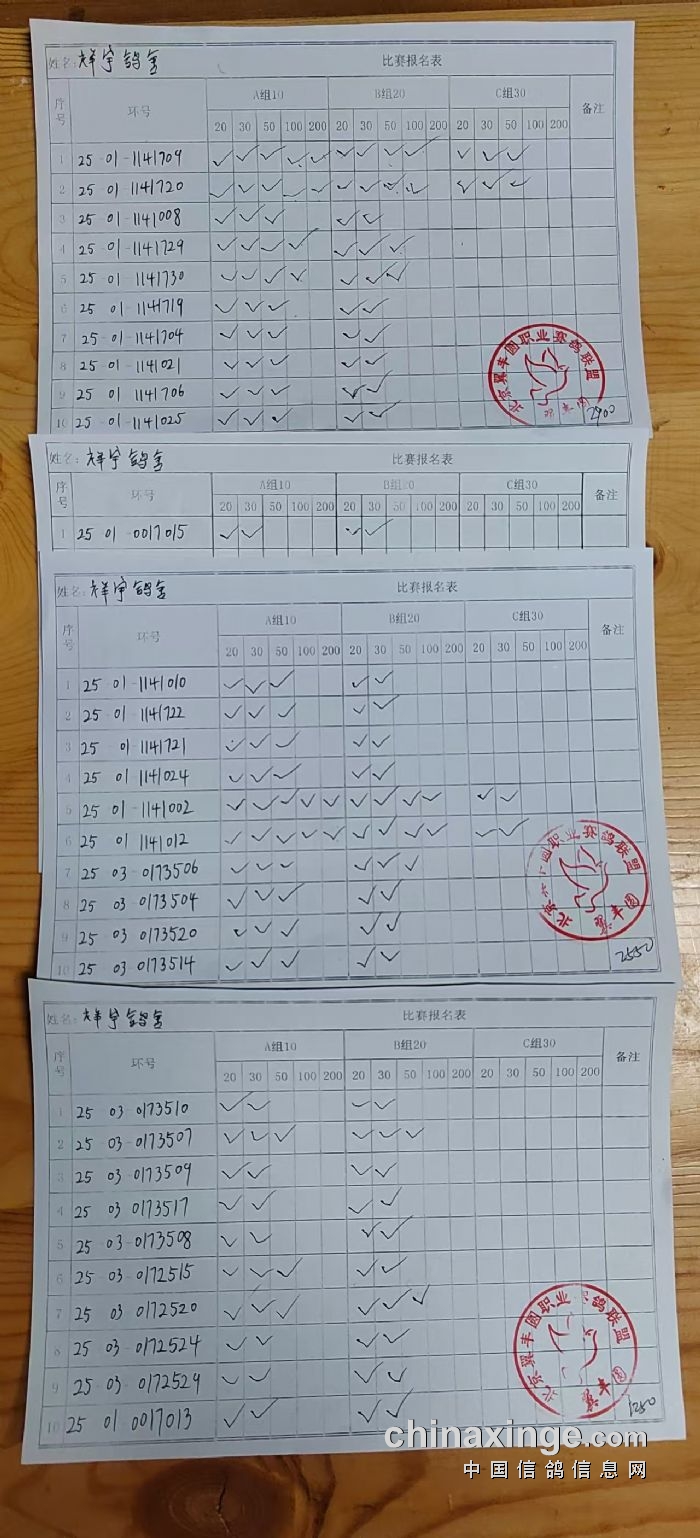 姓名: 祥宇鸽舍 比赛报名表
序号 环号 A组10 B组20 C组30 备注
20 30 50 100 200 20 30 50 100 200 20 30 50 100 200
1 25-01-1141709 ✓ ✓ ✓ ✓ ✓ ✓ ✓ ✓ ✓ ✓ ✓ ✓
2 25 01-1141720 ✓ ✓ ✓ ✓ ✓ ✓ ✓ ✓ ✓ ✓ ✓ ✓
3 25 01-1141008 ✓ ✓ ✓ ✓ ✓
4 25-01-1141729 ✓ ✓ ✓ ✓ ✓ ✓ ✓
5 25-01-1141730 ✓ ✓ ✓ ✓ ✓ ✓ ✓
6 25 01-1141719 ✓ ✓ ✓ ✓ ✓
7 25-01-1141704 ✓ ✓ ✓ ✓ ✓
8 25-01-1141021 ✓ ✓ ✓ ✓ ✓
9 25 01 1141706 ✓ ✓ ✓ ✓ ✓
10 25-01-1141025 ✓ ✓ ✓ ✓ ✓
北京翼丰圆职业赛鸽联盟
2900
姓名: 祥宇鸽舍 比赛报名表
序号 环号 A组10 B组20 C组30 备注
20 30 50 100 200 20 30 50 100 200 20 30 50 100 200
1 25 01-0017015 ✓ ✓ ✓ ✓
姓名: 祥宇鸽舍 比赛报名表
序号 环号 A组10 B组20 C组30 备注
20 30 50 100 200 20 30 50 100 200 20 30 50 100 200
1 25-01-1141010 ✓ ✓ ✓ ✓ ✓
2 25-01-1141722 ✓ ✓ ✓ ✓ ✓
3 25 01-1141721 ✓ ✓ ✓ ✓ ✓
4 25 01 1141024 ✓ ✓ ✓ ✓ ✓
5 25-01-1141002 ✓ ✓ ✓ ✓ ✓ ✓ ✓ ✓ ✓ ✓ ✓
6 25 01 1141012 ✓ ✓ ✓ ✓ ✓ ✓ ✓ ✓ ✓ ✓ ✓
7 25 03-0173506 ✓ ✓ ✓ ✓ ✓ ✓
8 25 03 0173504 ✓ ✓ ✓ ✓ ✓
9 25 03 0173520 ✓ ✓ ✓ ✓ ✓
10 25 03 0173514 ✓ ✓ ✓ ✓ ✓
北京翼丰圆职业赛鸽联盟
翼丰圆
2550
姓名: 祥宇鸽舍 比赛报名表
序号 环号 A组10 B组20 C组30 备注
20 30 50 100 200 20 30 50 100 200 20 30 50 100 200
1 25 03 0173510 ✓ ✓ ✓ ✓
2 25 03-0173507 ✓ ✓ ✓ ✓ ✓ ✓
3 25 03-0173509 ✓ ✓ ✓ ✓
4 25 03 0173517 ✓ ✓ ✓ ✓
5 25 03-0173508 ✓ ✓ ✓ ✓
6 25 03-0172515 ✓ ✓ ✓ ✓ ✓
7 25 03 0172520 ✓ ✓ ✓ ✓ ✓ ✓
8 25 03 0172524 ✓ ✓ ✓ ✓
9 25 03 0172529 ✓ ✓ ✓ ✓
10 25 01 0017013 ✓ ✓ ✓ ✓
北京翼丰圆职业赛鸽联盟
翼丰圆
1250
chinaxinge.com
中国信鸽信息网